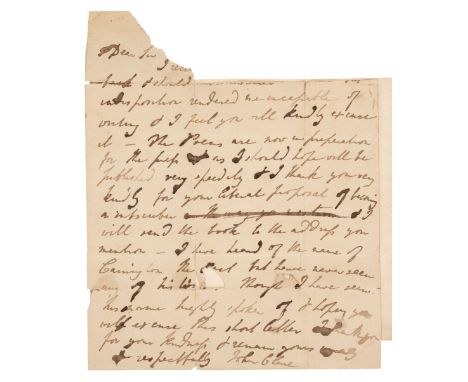 Dear Sir
I rec
back & should
indisposition rendered me incapable of
writing & I feel you will kindly excuse
it — The Poems are now in preparation
for the press & as I should hope will be
published very speedily & I thank you very
kindly for your liberal proposal of being
a subscriber & I
will send the book to the address you
mention — I have heard of the name of
Carrington the Poet but have never seen
any of his Though I have seen
his name highly spoken of & hope you
will excuse this short letter I thank you
for your kindness & remain yours
& respectfully John Clare